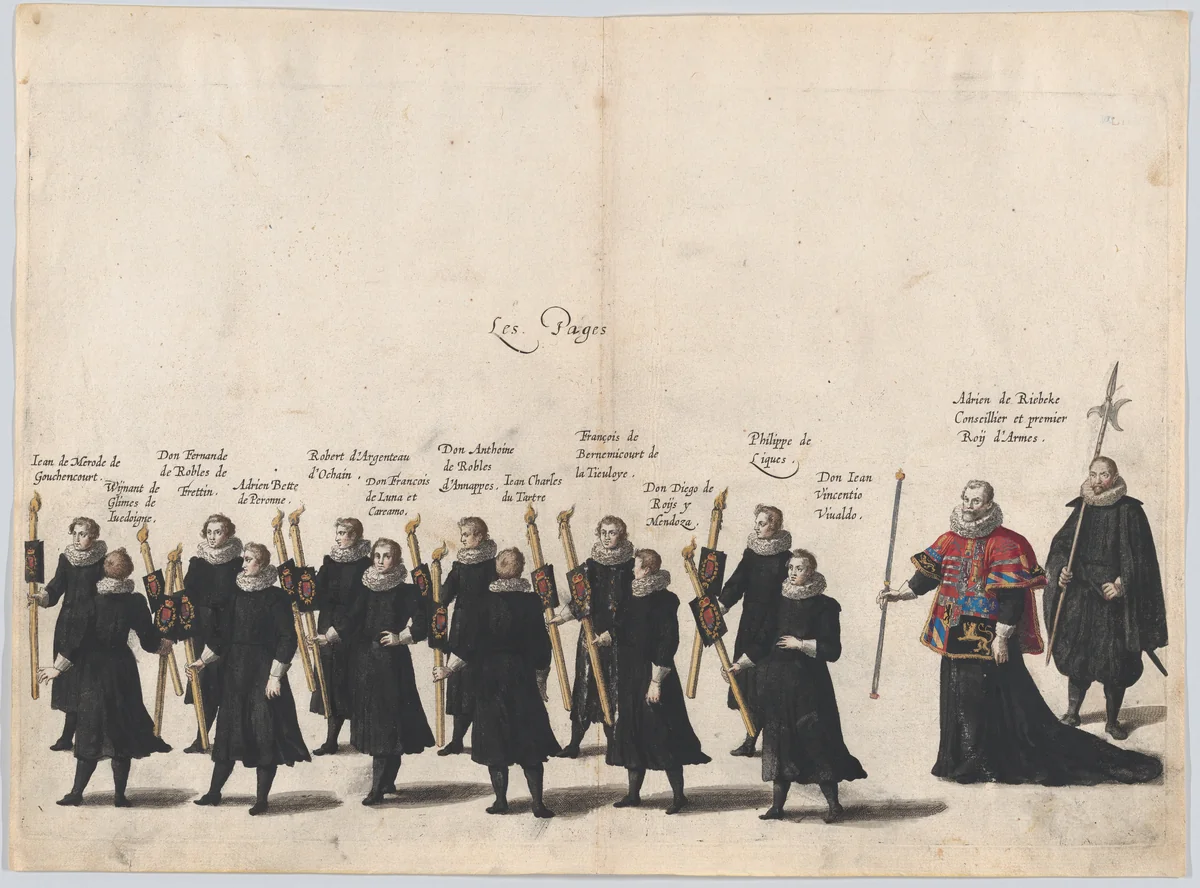 Les. Pages
Iean de Merode de
Gouchencourt.
Wÿnant de
Glimes de
Iuedoigne.
Don Fernande
de Robles de
Frettin.
Adrien Bette
de Peronne.
Robert d'Argenteau
d'Ochain.
Don François
de Luna et
Carcamo.
Don Anthoine
de Robles
d'Annappes.
Iean Charles
du Tartre
François de
Bernemicourt de
la Tieuloye.
Don Diego de
Roÿs y
Mendoza.
Philippe de
Liques.
Don Iean
Vincentio
Viualdo.
Adrien de Riebeke
Conseillier et premier
Roÿ d'Armes.